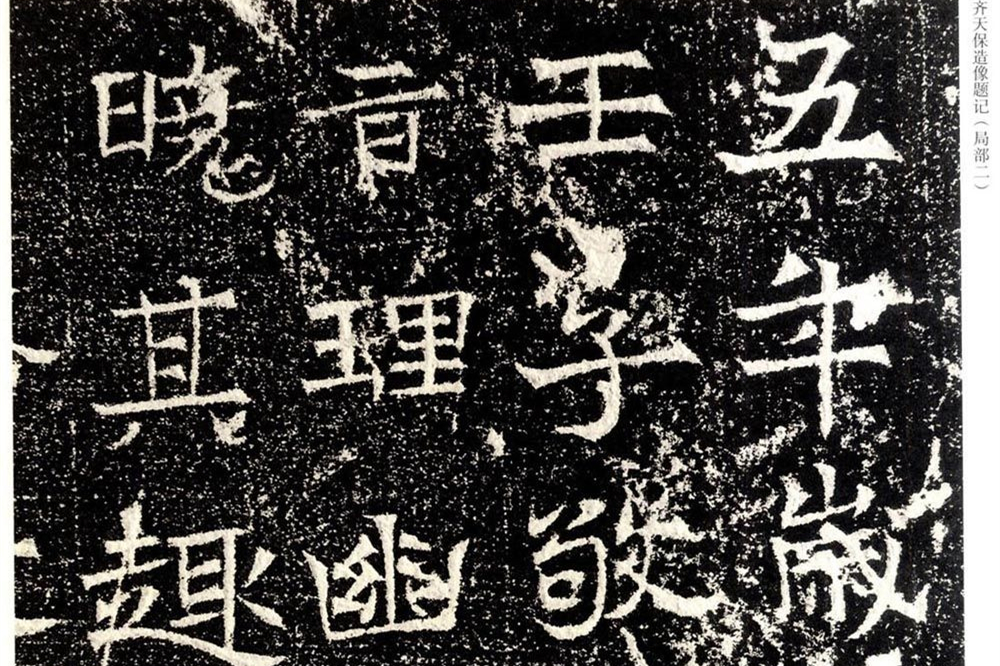 齐天保造像题记（局部二）
五年歲
壬子敬
音理幽
曉其趣